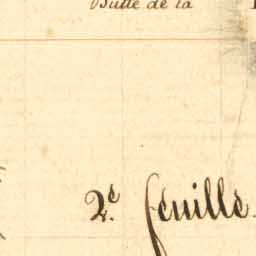 Butte de la
2e. feuille.